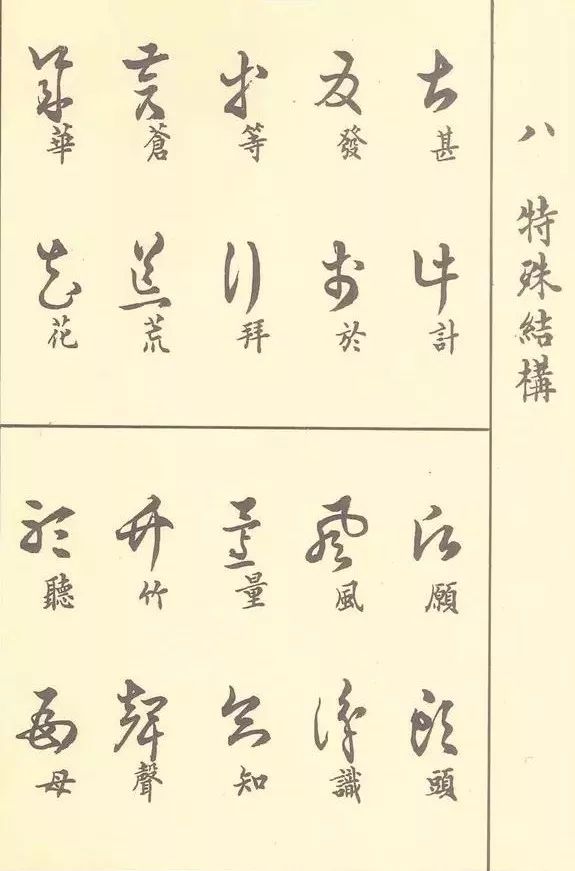 八 特殊結構
甚
計
發
於
等
拜
蒼
荒
華
花
願
頭
風
識
量
知
竹
聲
聽
母